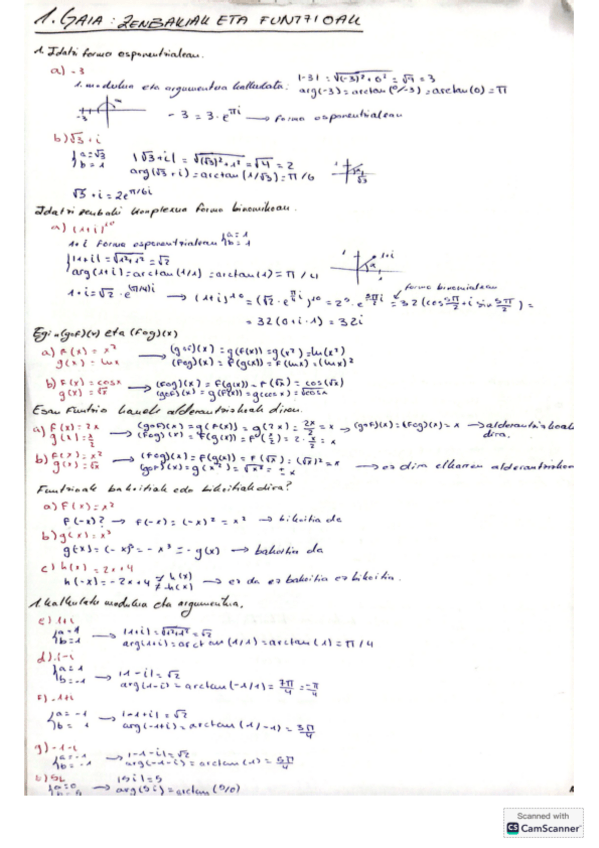 1. GAIA: ZENBAKIAK ETA FUNTZIOAK
1. Idatzi forma esponentzialean.
a) -3
1. modulua eta argumentua kalkulatu:
|-3| = √(-3)²+0² = √9 = 3
arg(-3) = arctan(0/-3) = arctan(0) = π
-3
-3 = 3·e^πi → forma esponentzialean
b) √3+i
{a=√3
b=1
|√3+i| = √(√3)²+1² = √4 = 2
arg(√3+i) = arctan(1/√3) = π/6
√3+i = 2e^π/6i
Idatzi zenbaki konplexua forma binomikoan.
a) (1+i)^10
1+i forma esponentzialean {a=1 b=1
|1+i| = √1²+1² = √2
arg(1+i) = arctan(1/1) = arctan(1) = π/4
1+i
1+i = √2·e^(π/4)i → (1+i)^10 = (√2·e^π/4i)^10 = 2⁵·e^5π/2i = 32(cos 5π/2 + i sin 5π/2) =
= 32(0+i·1) = 32i
Egin (gof)(x) eta (fog)(x)
a) f(x) = x²
g(x) = lnx
→ (gof)(x) = g(f(x)) = g(x²) = ln(x²)
(fog)(x) = f(g(x)) = f(lnx) = (lnx)²
b) f(x) = cosx
g(x) = √x
→ (fog)(x) = f(g(x)) = f(√x) = cos(√x)
(gof)(x) = g(f(x)) = g(cosx) = √cosx
Esan funtzio hauek alderantzizkoak diren.
a) f(x) = 2x
g(x) = x/2
→ (gof)(x) = g(f(x)) = g(2x) = 2x/2 = x → (gof)(x) = (fog)(x) = x → alderantzizkoak dira.
(fog)(x) = f(g(x)) = f(x/2) = 2·x/2 = x
b) f(x) = x²
g(x) = √x
→ (fog)(x) = f(g(x)) = f(√x) = (√x)² = x
(gof)(x) = g(x²) = √x² = ±x
→ ez dira elkarren alderantzizkoak
Funtzioak bakoitiak edo bikoitiak dira?
a) f(x) = x²
f(-x)? → f(-x) = (-x)² = x² → bikoitia da
b) g(x) = x³
g(-x) = (-x)³ = -x³ = -g(x) → bakoitia da
c) h(x) = 2x+4
h(-x) = -2x+4 ≠ h(x)
≠ -h(x)
→ ez da ez bakoitia ez bikoitia.
1. Kalkulatu modulua eta argumentua.
c) 1+i
{a=1
b=1
→ |1+i| = √1²+1² = √2
arg(1+i) = arctan(1/1) = arctan(1) = π/4
d) 1-i
{a=1
b=-1
→ |1-i| = √2
arg(1-i) = arctan(-1/1) = 7π/4 = -π/4
f) -1+i
{a=-1
b=1
→ |-1+i| = √2
arg(-1+i) = arctan(1/-1) = 3π/4
g) -1-i
{a=-1
b=-1
→ |-1-i| = √2
arg(-1-i) = arctan(1) = 5π/4
5i
{a=0
b=5
→ |5i| = 5
arg(5i) = arctan(5/0)
Scanned with
CS CamScanner